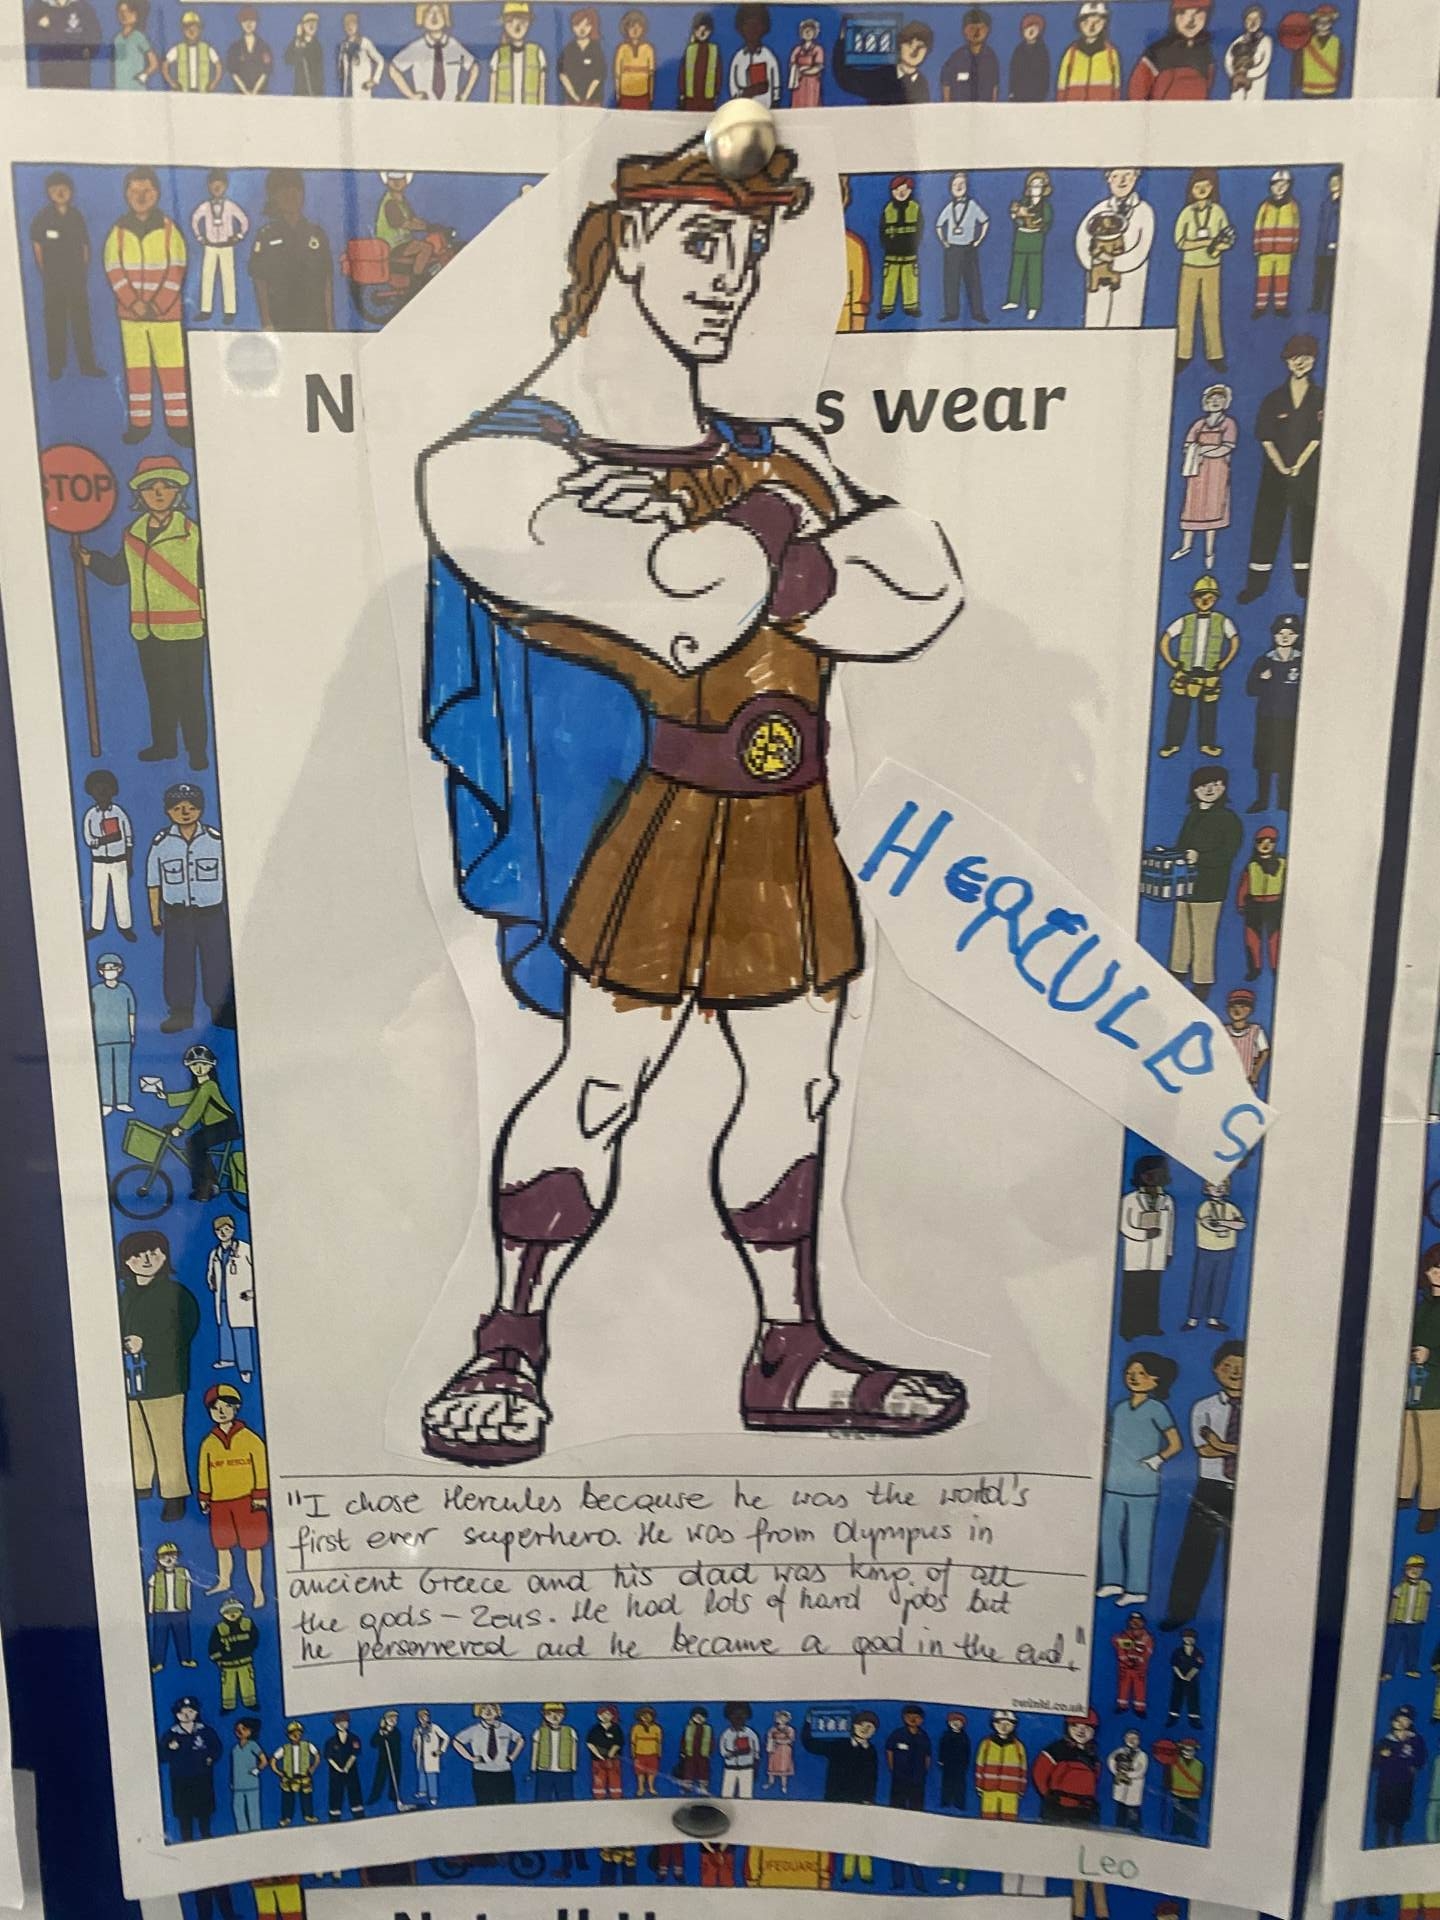 N
s wear
STOP
HERCULES
"I chose Hercules because he was the world's
first ever superhero. He was from Olympus in
ancient Greece and his dad was king of all
the gods - Zeus. He had lots of hard jobs but
he perservered and he became a god in the end."
twinkl.co.uk
SURF RESCUE
Leo
LIFEGUARD